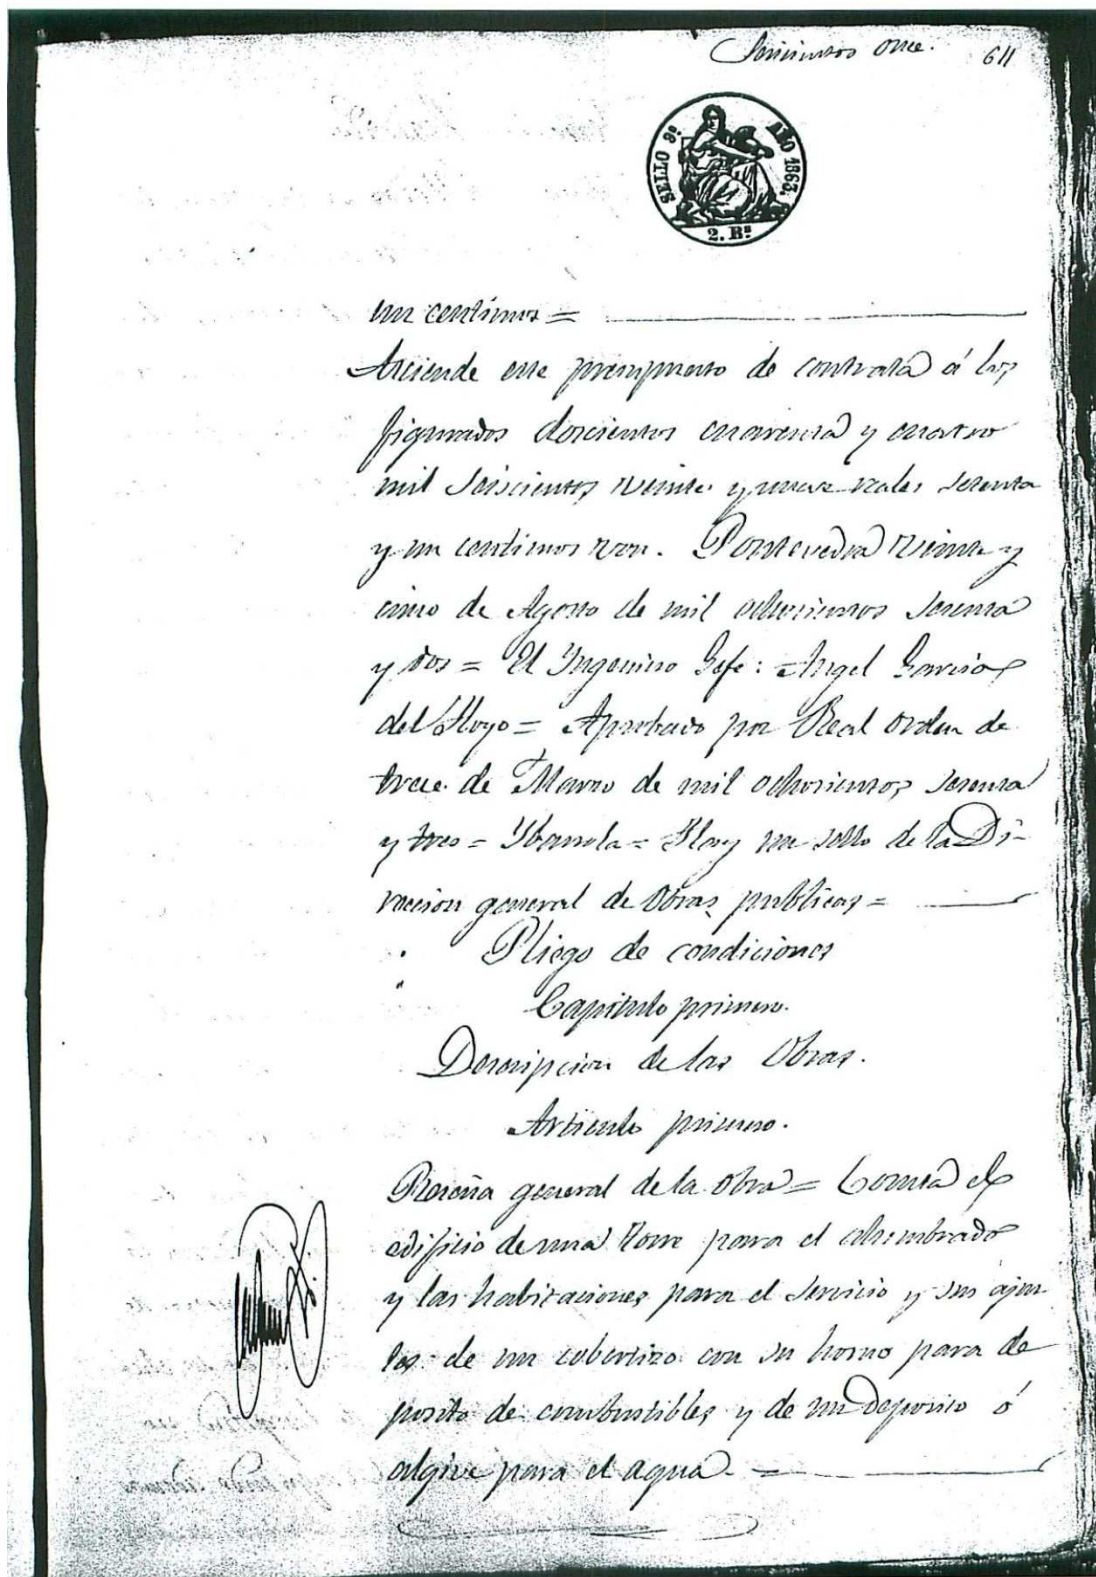 Seiscientos once. 611
SELLO 9º AÑO 1863.
2. Rs
un centimos =
Asciende este presupuesto de contrata á los
figurados doscientos cuarenta y cuatro
mil seiscientos veinte y nueve reales sesenta
y un centimos von. Pontevedra veinte y
cinco de Agosto de mil ochocientos sesenta
y dos = El Yngeniero Gefe: Angel Garcia
del Hoyo = Aprobado por Real orden de
trece de Marzo de mil ochocientos sesenta
y tres = Ybarrola = Hay un sello de la Di-
reccion general de Obras publicas =
Pliego de condiciones
Capitulo primero.
Descripcion de las Obras.
Articulo primero.
Reseña general de la obra = Consta el
edificio de una torre para el alumbrado
y las habitaciones para el servicio y sus
de un cobertizo con su horno para de
posito de combustibles y de un deposito ó
algive para el agua. =